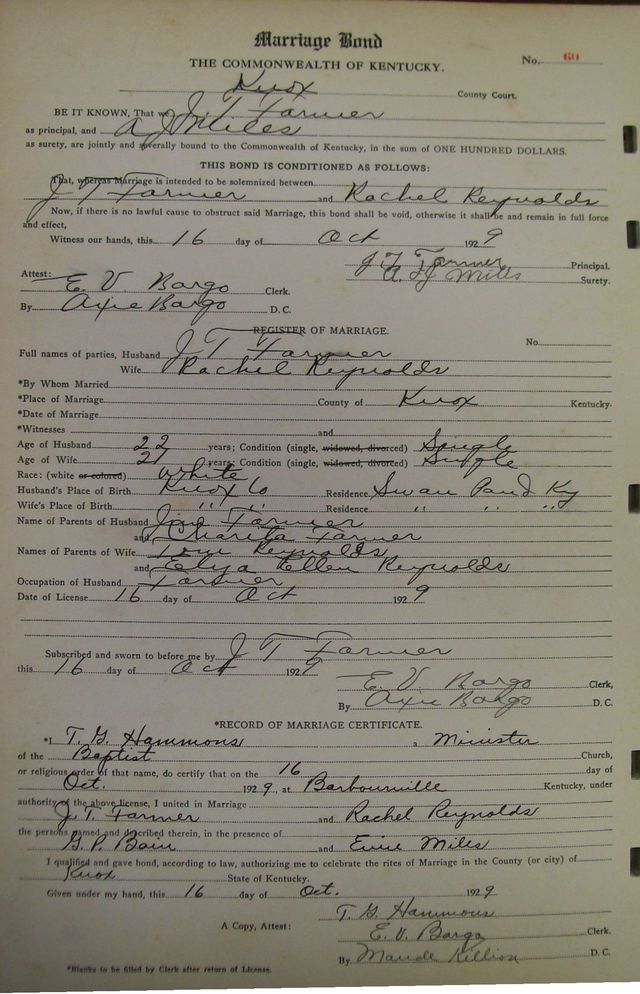 Marriage Bond
THE COMMONWEALTH OF KENTUCKY.
No. 60
Knox County Court.
BE IT KNOWN, That we J T Farmer
as principal, and A J Miles
as surety, are jointly and severally bound to the Commonwealth of Kentucky, in the sum of ONE HUNDRED DOLLARS.
THIS BOND IS CONDITIONED AS FOLLOWS:
That, whereas Marriage is intended to be solemnized between
J T Farmer and Rachel Reynolds
Now, if there is no lawful cause to obstruct said Marriage, this bond shall be void, otherwise it shall be and remain in full force
and effect,
Witness our hands, this 16 day of Oct 1929
J T Farmer Principal.
A J Miles Surety.
Attest: E. V. Bargo Clerk.
By Axie Bargo D. C.
REGISTER OF MARRIAGE.
No.
Full names of parties, Husband J T Farmer
Wife Rachel Reynolds
*By Whom Married
*Place of Marriage County of Knox Kentucky.
*Date of Marriage
*Witnesses and
Age of Husband 22 years; Condition (single, widowed, divorced) Single
Age of Wife 21 years; Condition (single, widowed, divorced) Single
Race: (white or colored) White
Husband's Place of Birth Knox Co Residence Swan Pand Ky
Wife's Place of Birth " " " Residence " " "
Name of Parents of Husband Farmer
and Charita Farmer
Names of Parents of Wife Reynolds
and Ellen Reynolds
Occupation of Husband Farmer
Date of License 16 day of Oct 1929
Subscribed and sworn to before me by J T Farmer
this 16 day of Oct 1929
E. V. Bargo Clerk,
By Axie Bargo D. C.
*RECORD OF MARRIAGE CERTIFICATE.
*I T. G. Hammons a Minister
of the Baptist Church,
or religious order of that name, do certify that on the 16 day of
Oct. 1929, at Barbourville Kentucky, under
authority of the above license, I united in Marriage
J. T. Farmer and Rachel Reynolds
the persons named and described therein, in the presence of
G. P. Bain and Miles
I qualified and gave bond, according to law, authorizing me to celebrate the rites of Marriage in the County (or city) of
Knox State of Kentucky.
Given under my hand, this 16 day of Oct. 1929
T. G. Hammons
A Copy, Attest: E. V. Bargo Clerk.
By Maude Killion D. C.
*Blanks to be filled by Clerk after return of License.